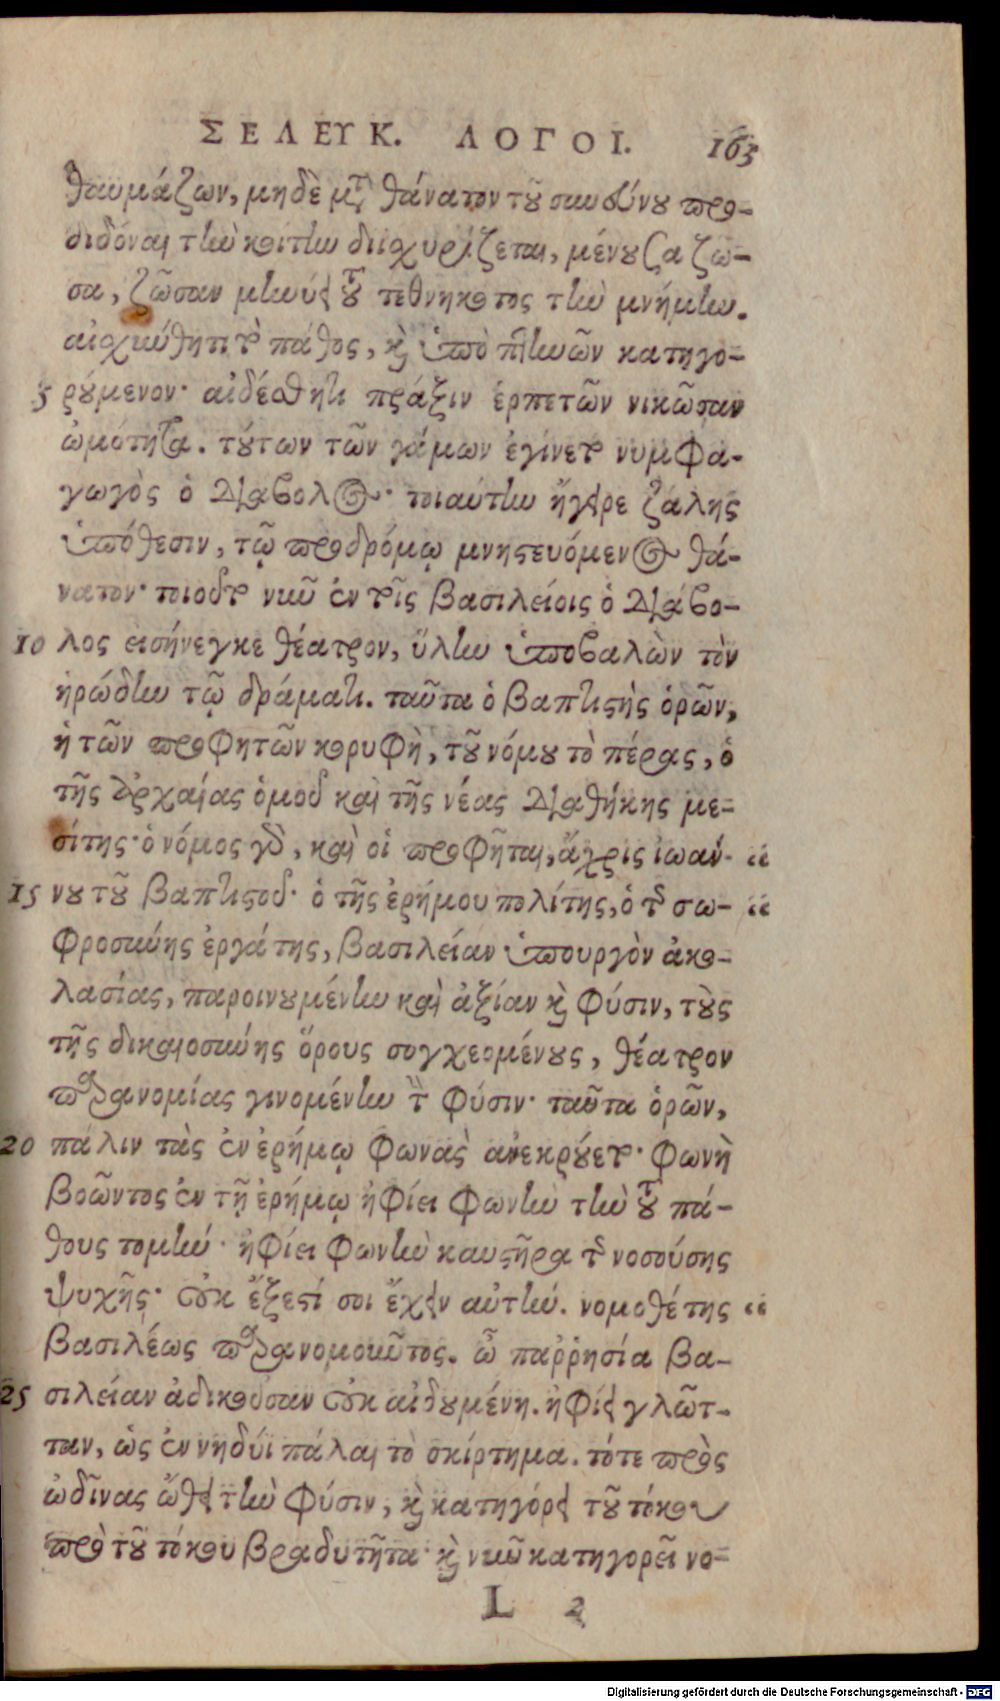 ΣΕΛΕΥΚ. ΛΟΓΟΙ. 163
θαυμάζων, μηδὲ μτ θάνατον τȣ͂ συνεύνȣ προ-
διδόναι τὴν κοίτην διϊσχυρίζεται, μένȣσα ζῶ-
σα, ζῶσαν μηνύει τȣ τεθνηκότος τὴν μνήμην.
αἰσχύνθητι τὸ πάθος, κὶ ὑπὸ πτηνῶν κατηγο-
5 ρȣ́μενον· αἰδέσθητι πρᾶξιν ἑρπετῶν νικῶσαν
ὠμότητα. τȣ́των τῶν γάμων ἐγίνετο νυμφα-
γωγὸς ὁ διάβολος· τοιαύτην ἤγειρε ζάλης
ὑπόθεσιν, τῷ προδρόμῳ μνηστευόμενος θά-
νατον· τοιοῦτο νῦν ἐν τοῖς βασιλείοις ὁ διάβο-
10 λος εἰσήνεγκε θέατρον, ὕλην ὑποβαλὼν τὸν
ἡρώδην τῷ δράματι. ταῦτα ὁ βαπτιστὴς ὁρῶν,
ἡ τῶν προφητῶν κορυφὴ, τȣ͂ νόμȣ τὸ πέρας, ὁ
τῆς ἀρχαίας ὁμοῦ καὶ τῆς νέας διαθήκης με-
σίτης· ὁ νόμος γὸ, καὶ οἱ προφῆται, ἄχρις ἰωάν- “
15 νȣ τȣ͂ βαπτιστοῦ· ὁ τῆς ἐρήμου πολίτης, ὁ τῆς σω- “
φροσύνης ἐργάτης, βασιλείαν ὑπουργὸν ἀκο-
λασίας, παροινȣμένην καὶ ἀξίαν κὶ φύσιν, τȣ̀ς
τῆς δικαιοσύνης ὅρους συγχεομένȣς, θέατρον
παρανομίας γινομένην τὴν φύσιν· ταῦτα ὁρῶν,
20 πάλιν τὰς ἐν ἐρήμῳ φωνὰς ἀνεκρȣ́ετο· φωνὴ
βοῶντος ἐν τῇ ἐρήμῳ ἠφίει φωνὴν τὴν τȣ πά-
θους τομήν· ἠφίει φωνὴν καυστῆρα τῆς νοσούσης
ψυχῆς· οὐκ ἔξεστί σοι ἔχειν αὐτήν. νομοθέτης “
βασιλέως παρανομοῦντος. ὦ παῤῥησία βα-
25 σιλείαν ἀδικοῦσαν οὐκ αἰδȣμένη. ἠφίει γλῶτ-
ταν, ὡς ἐν νηδύϊ πάλαι τὸ σκίρτημα. τότε πρὸς
ὠδῖνας ὤθει τὴν φύσιν, κὶ κατηγόρει τȣ͂ τόκου
πρὸ τȣ͂ τόκου βραδυτῆτα· κὶ νῦν κατηγορεῖ νο-
L 2
Digitalisierung gefördert durch die Deutsche Forschungsgemeinschaft - DFG